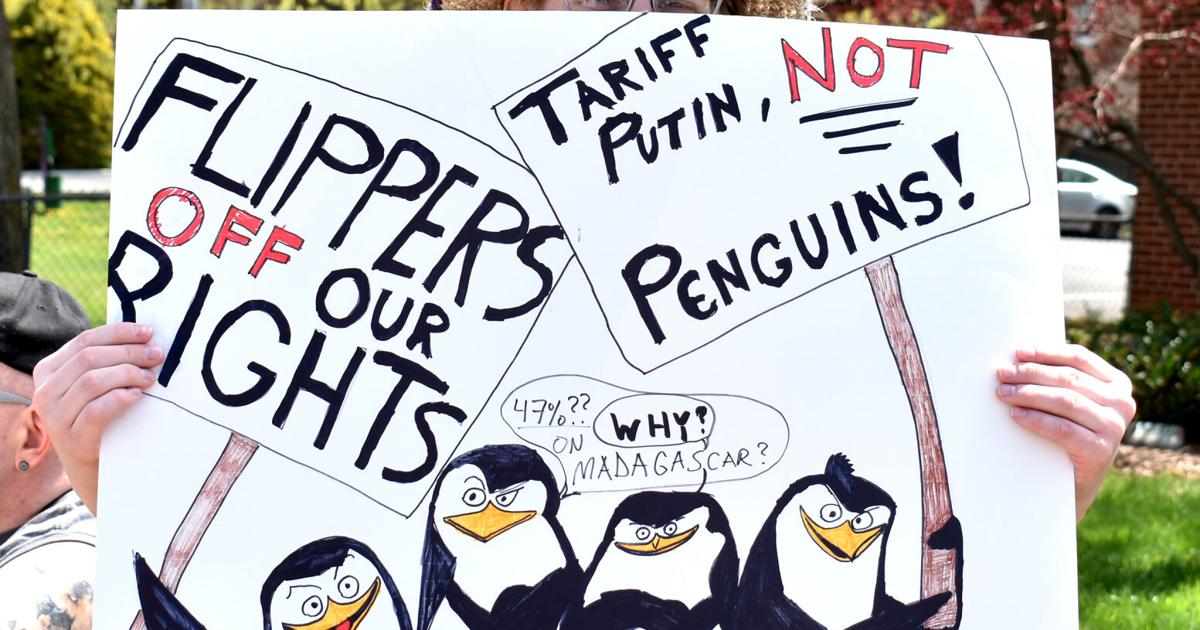 FLIPPERS
OFF OUR
RIGHTS
TARIFF
PUTIN, NOT
PENGUINS!
47%??
ON
MADAGASCAR?
WHY?